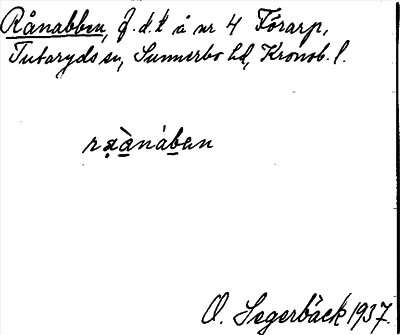 Rånabben, f.d.t å nr 4 Förarp,
Tutaryds sn, Sunnerbo hd, Kronob. l.
raànában
O. Segerbäck 1937.